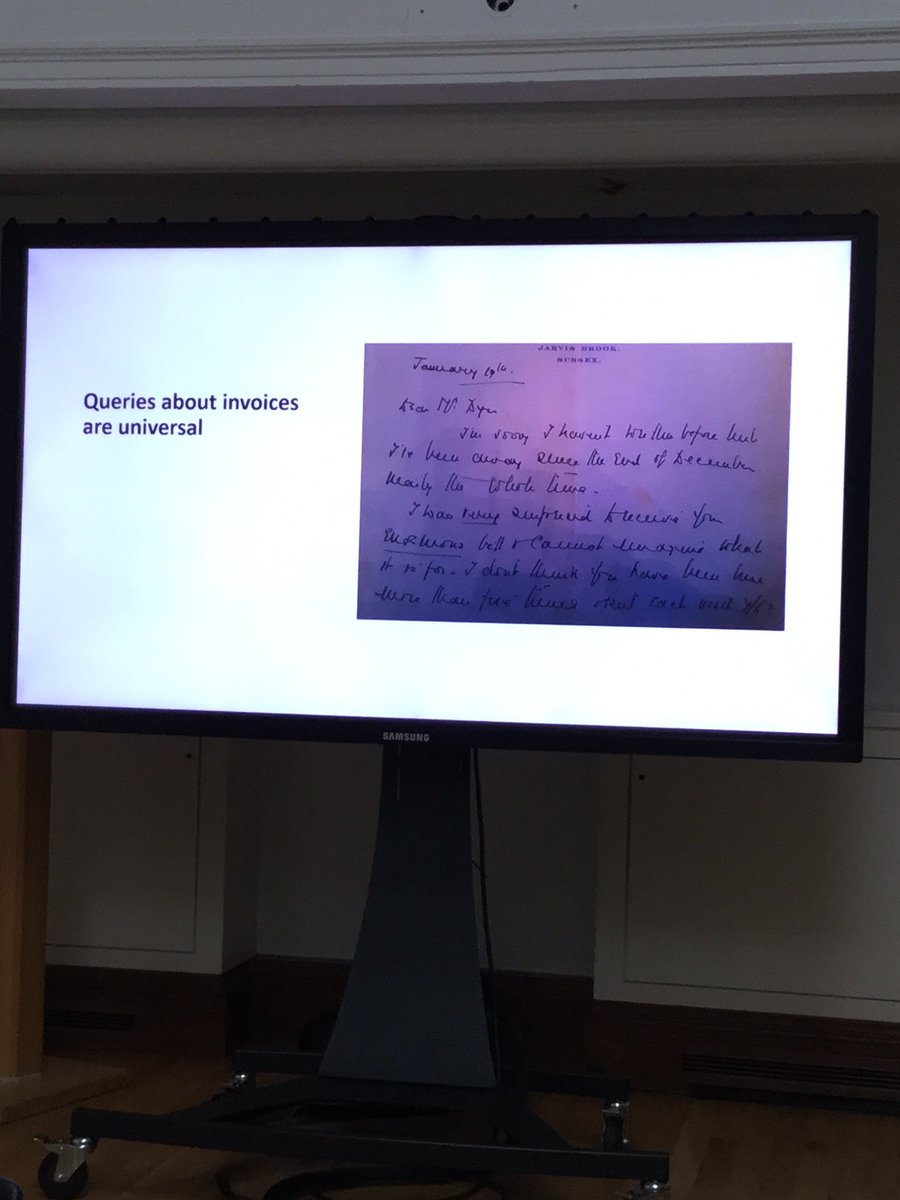 Queries about invoices
are universal
JARVIS BROOK.
SUSSEX.
January 19th.
Dear Mr. Dyer
I'm sorry I havent written before but
I've been away since the End of December
nearly the whole time.
I was very surprised to receive your
Enormous bill & cannot imagine what
it is for. I dont think you have been here
more than five times & each visit
SAMSUNG